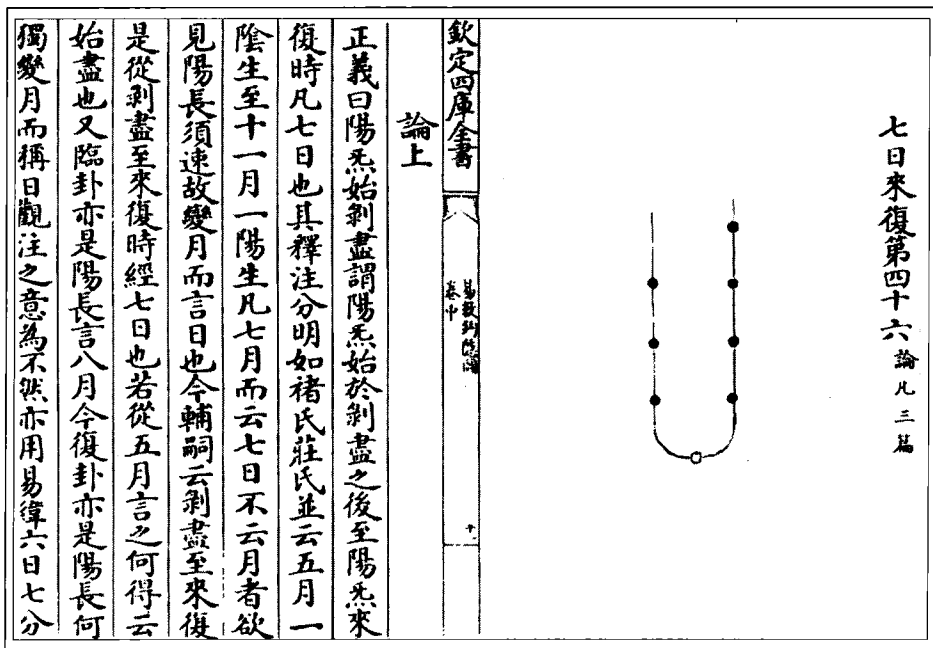 七日來復第四十六 論凡三篇
欽定四庫全書
易數鈎隱圖
卷中
十
論上
正義曰陽炁始剝盡謂陽炁始於剝盡之後至陽炁來
復時凡七日也其釋注分明如褚氏莊氏並云五月一
陰生至十一月一陽生凡七月而云七日不云月者欲
見陽長須速故變月而言日也今輔嗣云剝盡至來復
是從剝盡至來復時經七日也若從五月言之何得云
始盡也又臨卦亦是陽長言八月今復卦亦是陽長何
獨變月而稱日觀注之意為不然亦用易緯六日七分